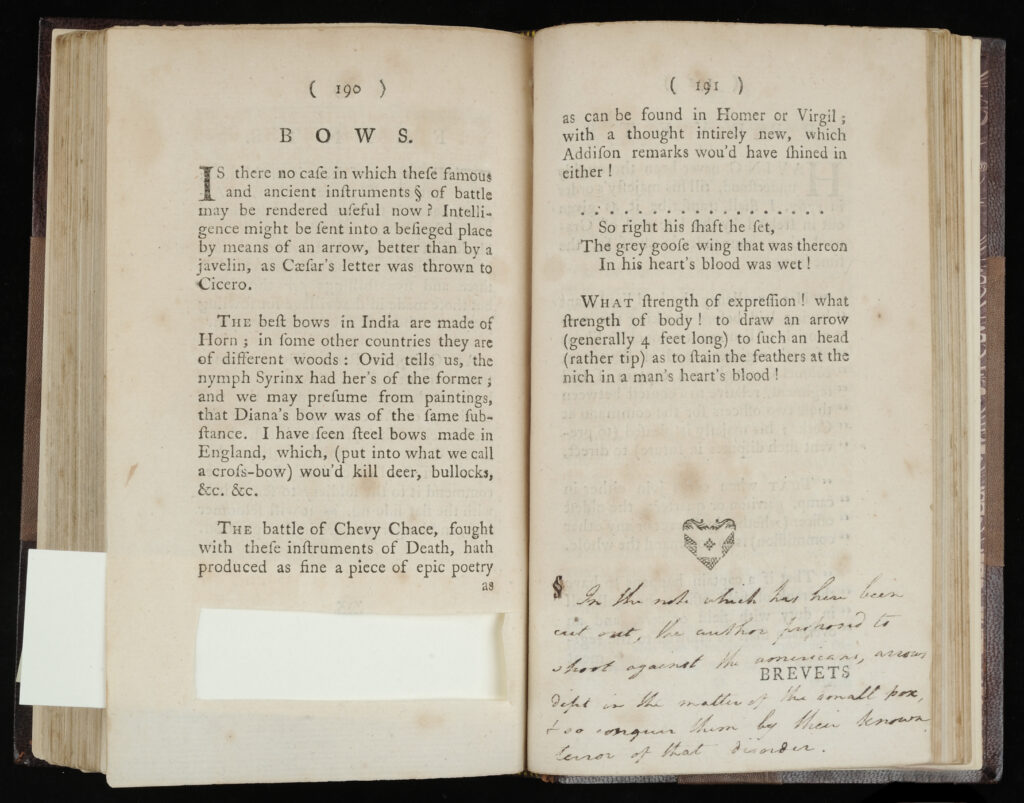 ( 190 )
BOWS.
IS there no caſe in which theſe famous
and ancient inſtruments § of battle
may be rendered uſeful now? Intelli-
gence might be ſent into a beſieged place
by means of an arrow, better than by a
javelin, as Cæſar's letter was thrown to
Cicero.
THE beſt bows in India are made of
Horn; in ſome other countries they are
of different woods: Ovid tells us, the
nymph Syrinx had her's of the former;
and we may preſume from paintings,
that Diana's bow was of the ſame ſub-
ſtance. I have ſeen ſteel bows made in
England, which, (put into what we call
a croſs-bow) wou'd kill deer, bullocks,
&c. &c.
THE battle of Chevy Chace, fought
with theſe inſtruments of Death, hath
produced as fine a piece of epic poetry
as
( 191 )
as can be found in Homer or Virgil;
with a thought intirely new, which
Addiſon remarks wou'd have ſhined in
either!
. . . . . . . . . . . . . . . . . .
So right his ſhaft he ſet,
The grey gooſe wing that was thereon
In his heart's blood was wet!
WHAT ſtrength of expreſſion! what
ſtrength of body! to draw an arrow
(generally 4 feet long) to ſuch an head
(rather tip) as to ſtain the feathers at the
nich in a man's heart's blood!
§ In the note which has here been
cut out, the author proposed to
shoot against the americans, arrows
BREVETS
dipt in the matter of the small pox,
& so conquer them by their known
terror of that disorder.